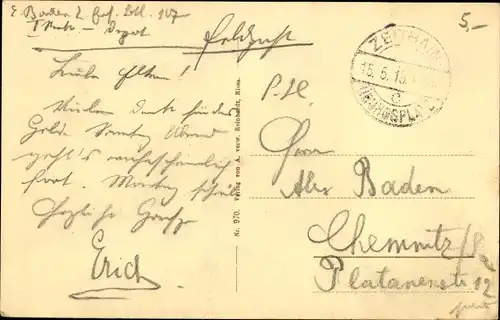 E. Baden 2. Ers. Btl. 107
I. Rek. - Depot
Feldpost
5,–
ZEITHAIN
15.5.15
c
ÜBUNGSPLATZ
Liebe Eltern!
Vielen Dank für das
Geld. Sonntag Abend
geht's wahrscheinlich
fort. Montag früh
Herzliche Grüße
Erich
Nr. 970. Verlag von A. verw. Reinhardt, Riesa.
Herrn
Alex Baden
Chemnitz/Sa
Platanenstr 12